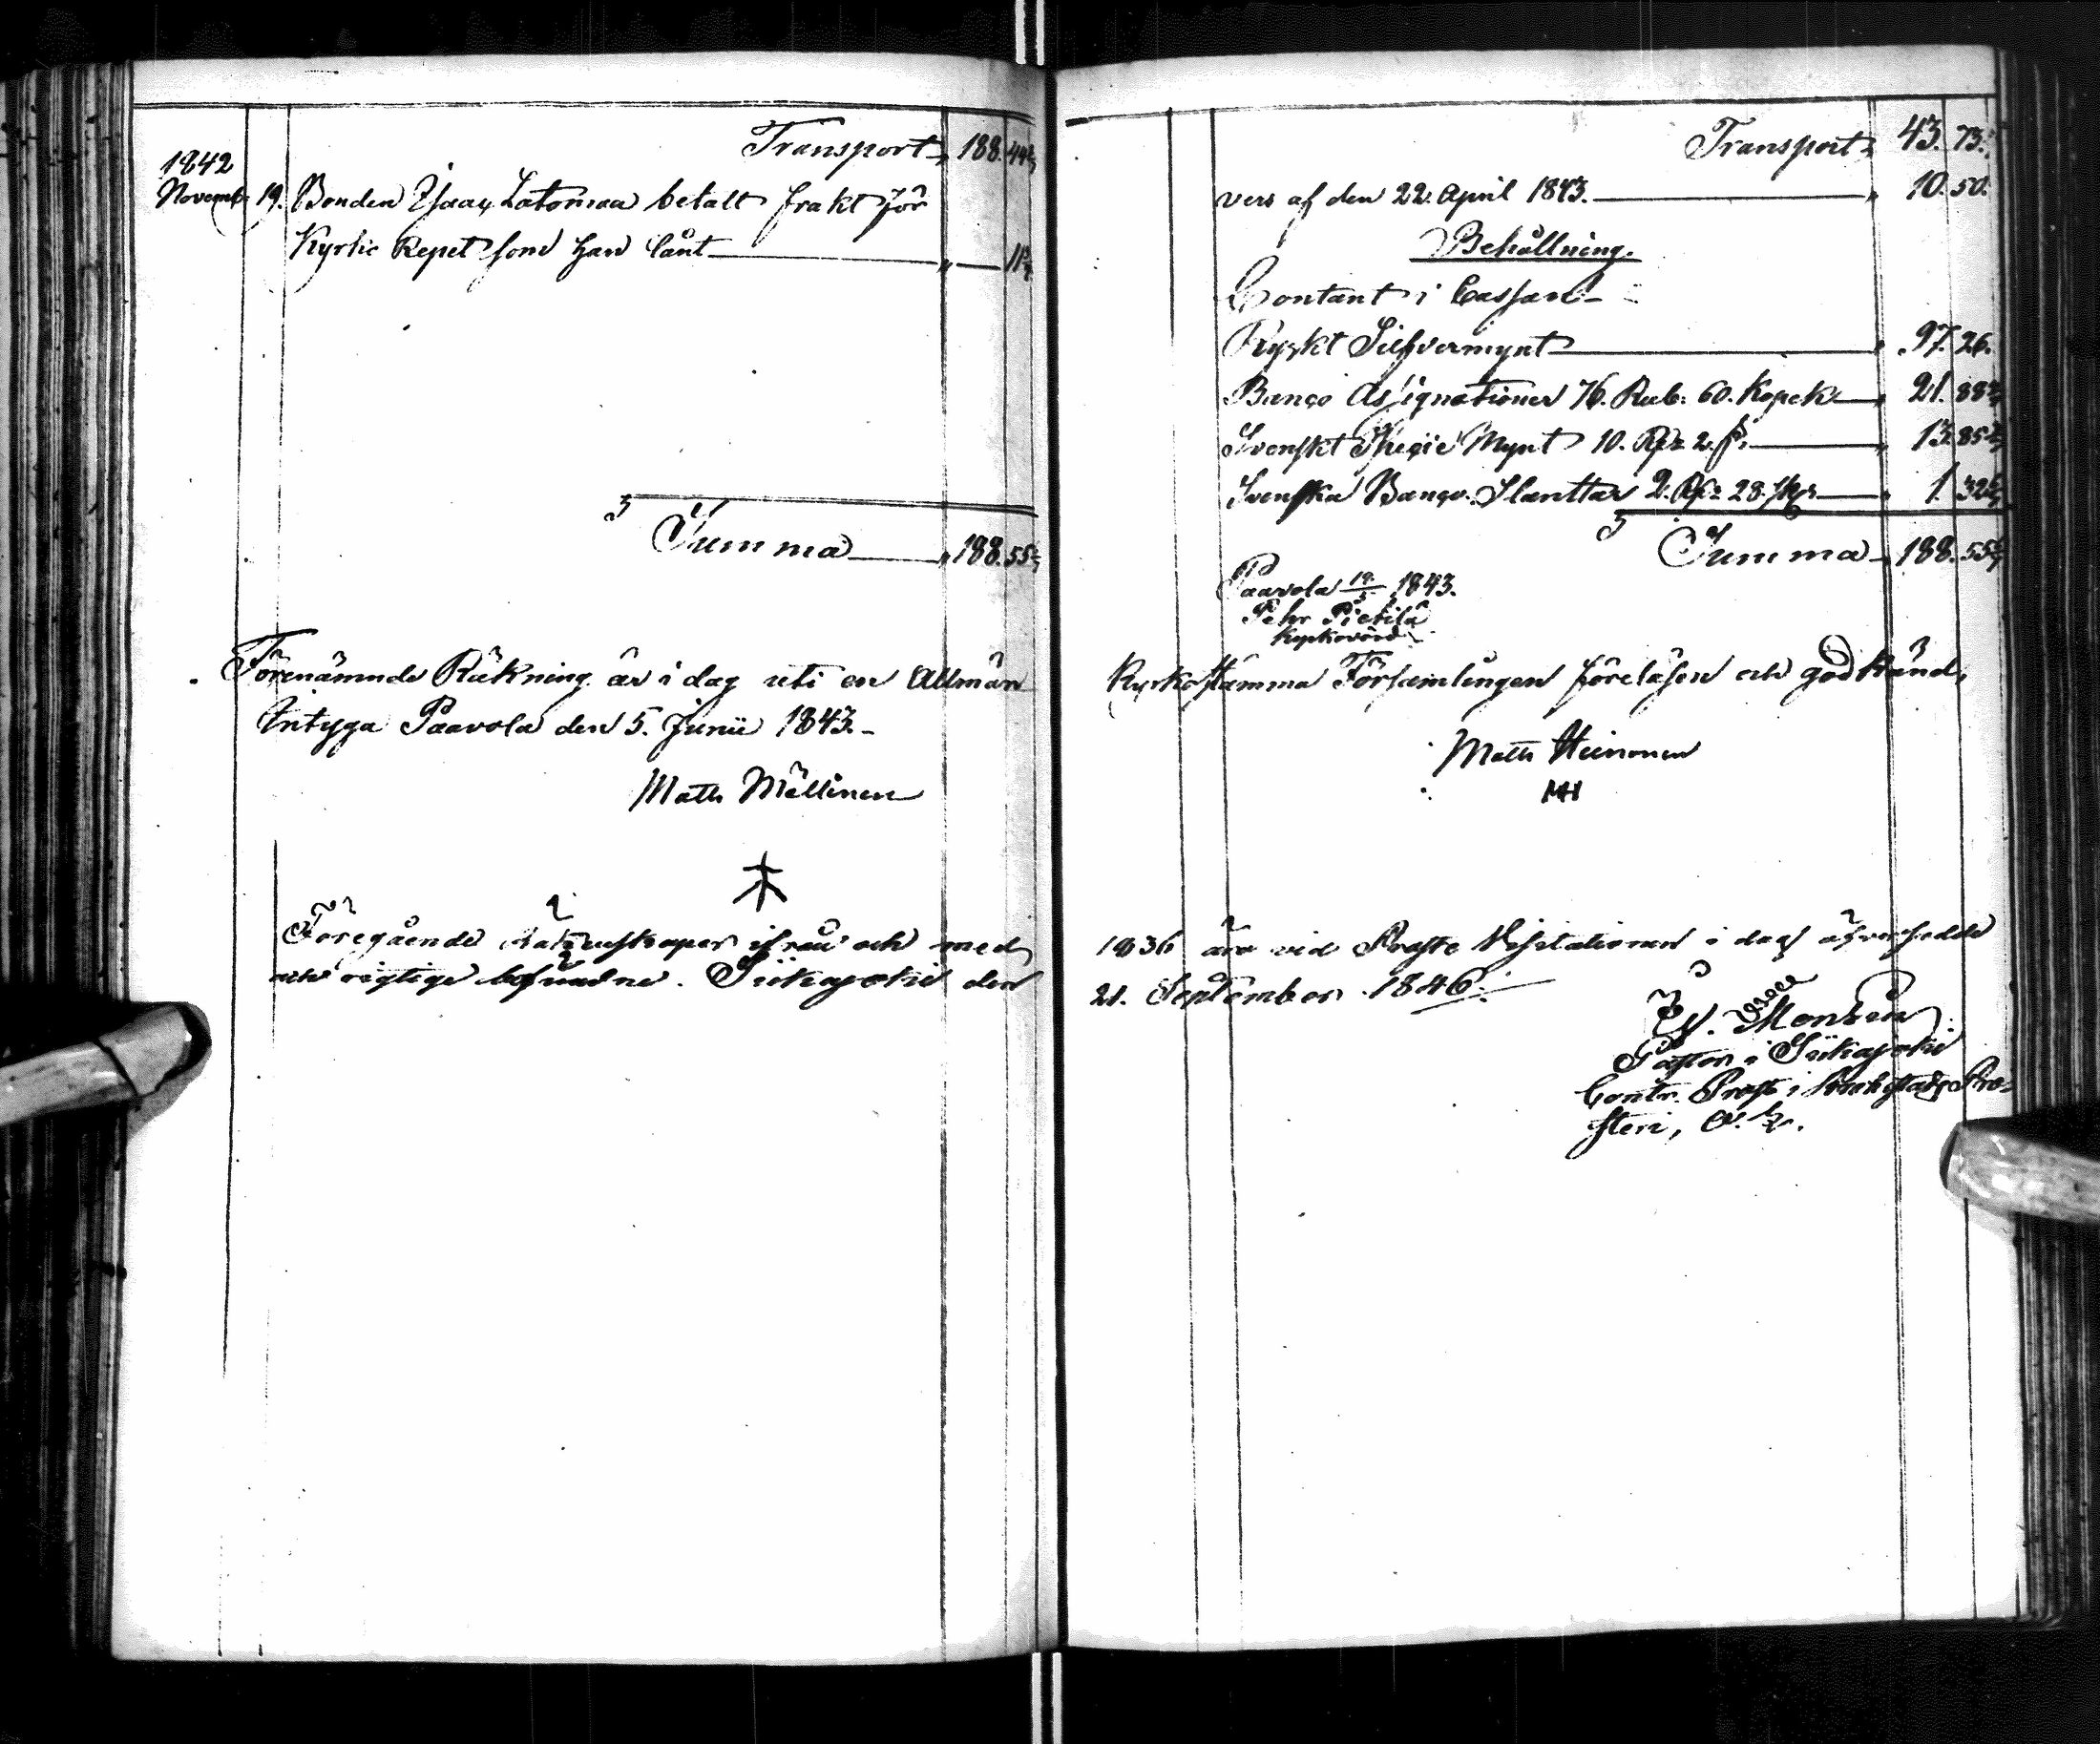 Transport „ 188. 44 2/7
1842
Novemb: 19. Bonden Isaac Latomaa betalt frakt för
Kyrkie Repet som han lånt „ — 11 3/7
Summa „ 188. 55 5/7
Förenämnde Räkning är i dag uti en Allmän
Intyga Paavola den 5. Junii 1843.
Matts Mällinen
Föregående Räkenskaper ifrån och med
och rigtige befundne. Siikajoki den
Transport „ 43. 73.
vers af den 22. April 1843. „ 10. 50.
Behållning.
Contant i Cassan
Ryskt Silfvermynt „ 97. 26.
Banco Assignationer 76. Rub: 60. Kopek „ 21. 88 4/7
Svenskt Specie Mynt 10. Rd 2. s. „ 13. 85
Svenska Banco Slanttar 2. Rd 28. sk „ 1. 32
Summa „ 188. 55 5/7
Paavola 19/5 1843.
Pehr Pietilä
Kyrkovärd
Kyrkostämma Församlingen föreläsen och godkänd,
Matts Heinonen
MH
1836 äro vid Proste Visitationen i dag öfversedde
21. September 1846.
Pastor i Siikajoki
Contr. Prost i Brahestads Pro-
steri,